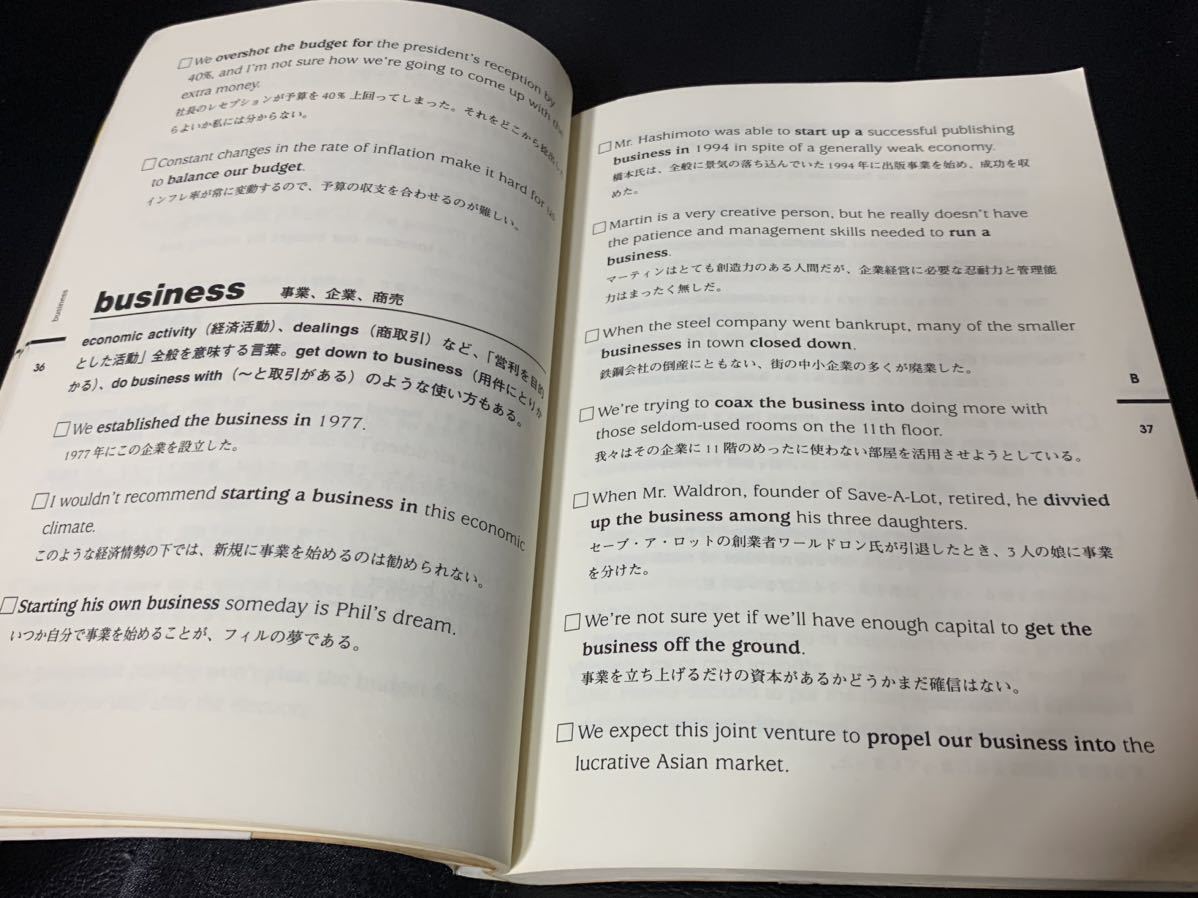 □We overshot the budget for the president's reception by
40%, and I'm not sure how we're going to come up with the
extra money.
社長のレセプションが予算を40%上回ってしまった。それをどこから捻出した
らよいか私には分からない。
□Constant changes in the rate of inflation make it hard for us
to balance our budget.
インフレ率が常に変動するので、予算の収支を合わせるのが難しい。
business
36
business 事業、企業、商売
economic activity（経済活動）、dealings（商取引）など、「営利を目的
とした活動」全般を意味する言葉。get down to business（用件にとりか
かる）、do business with（〜と取引がある）のような使い方もある。
□We established the business in 1977.
1977年にこの企業を設立した。
□I wouldn't recommend starting a business in this economic
climate.
このような経済情勢の下では、新規に事業を始めるのは勧められない。
□Starting his own business someday is Phil's dream.
いつか自分で事業を始めることが、フィルの夢である。
□Mr. Hashimoto was able to start up a successful publishing
business in 1994 in spite of a generally weak economy.
橋本氏は、全般に景気の落ち込んでいた1994年に出版事業を始め、成功を収
めた。
□Martin is a very creative person, but he really doesn't have
the patience and management skills needed to run a
business.
マーティンはとても創造力のある人間だが、企業経営に必要な忍耐力と管理能
力はまったく無しだ。
□When the steel company went bankrupt, many of the smaller
businesses in town closed down.
鉄鋼会社の倒産にともない、街の中小企業の多くが廃業した。
□We're trying to coax the business into doing more with
those seldom-used rooms on the 11th floor.
我々はその企業に11階のめったに使わない部屋を活用させようとしている。
□When Mr. Waldron, founder of Save-A-Lot, retired, he divvied
up the business among his three daughters.
セーブ・ア・ロットの創業者ワールドロン氏が引退したとき、3人の娘に事業
を分けた。
□We're not sure yet if we'll have enough capital to get the
business off the ground.
事業を立ち上げるだけの資本があるかどうかまだ確信はない。
□We expect this joint venture to propel our business into the
lucrative Asian market.
B
37